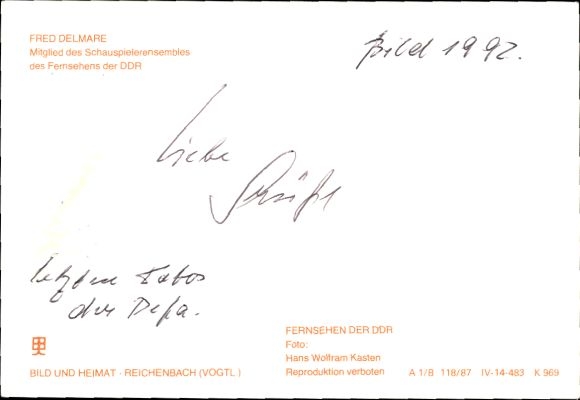 FRED DELMARE
Mitglied des Schauspielerensembles
des Fernsehens der DDR
Bild 1992.
Liebe
Grüße
letzten Fotos
der Defa.
FERNSEHEN DER DDR
Foto:
Hans Wolfram Kasten
Reproduktion verboten A 1/8 118/87 IV-14-483 K 969
BILD UND HEIMAT · REICHENBACH (VOGTL.)